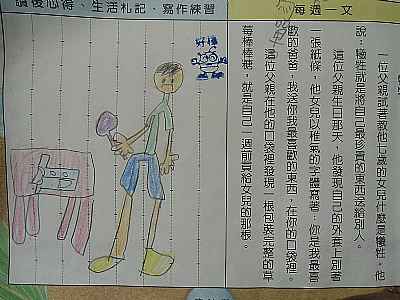 讀後心得、生活札記、寫作練習
每週一文
一位父親試著教他七歲的女兒什麼是犧牲。他
說：犧牲就是將自己最珍貴的東西送給別人。
這位父親生日那天，他發現自己的外套上別著
一張紙條，他女兒以稚氣的字體寫著：你是我最喜
歡的爸爸，我送你我最喜歡的東西，在你的口袋裡。
這位父親在他的口袋裡發現一根包裝完整的草
莓棒棒糖，就是自己一週前買給女兒的那根。
好棒